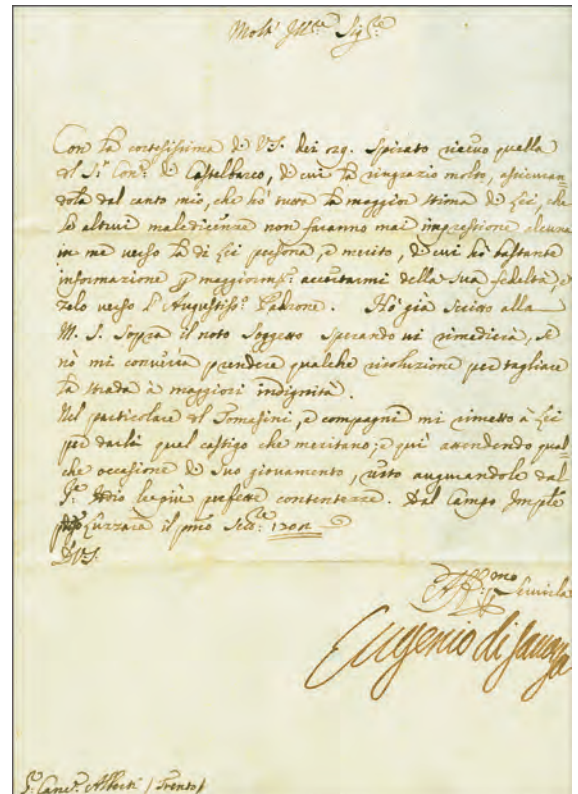 Molt' Ill:re Sig:re
Con la cortesissima di V.S. dei 29. spirato ricevo quella
del S:r Con: di Castelbarco, di cui la ringrazio molto, assicuran=
dola dal canto mio, che hò tutta la maggior stima di Lei, che
le altrui maledicenze non faranno mai impressione alcuna
in me verso la di Lei persona, e merito, di cui hò bastante
informazione p maggiorm:te accertarmi della sua fedeltà, e
zelo verso l'Augustiss:o Padrone. Hò già scritto alla
M. S. sopra il noto soggetto sperando vi rimedierà, se
nò mi converrà prendere qualche risoluzione per tagliare
la strada à maggiori indignità.
Nel particolare del Tomasini, e compagni mi rimetto à Lei
per darli quel castigo che meritano; e quì attendendo qual=
che occasione di suo giovamento, resto augurandole dal
S:re Iddio le più perfette contentezze. Dal Campo Imp:le
Luzzara il p:mo Sett:e 1702
D.V.S.
Aff:mo
Eugenio di Savoya
S:r Canc:r Alberti /Trento/